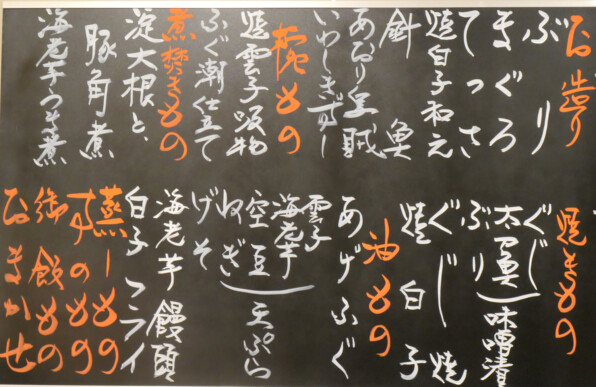 お造り
ぶり
まぐろ
てっさ
焼白子和え
針魚
あおり烏賊
いわしきずし
椀もの
焼雲子吸物
ふぐ潮仕立て
煮焚きもの
淀大根と、
豚角煮
海老芋うま煮
焼きもの
ぐじ
太刀魚
ぶり
味噌漬
ぐじ焼
焼白子
油もの
あげふぐ
雲子
海老芋
空豆
ねぎ
天ぷら
げそ
海老芋饅頭
白子フライ
蒸しもの
すのもの
御飯もの
おまかせ